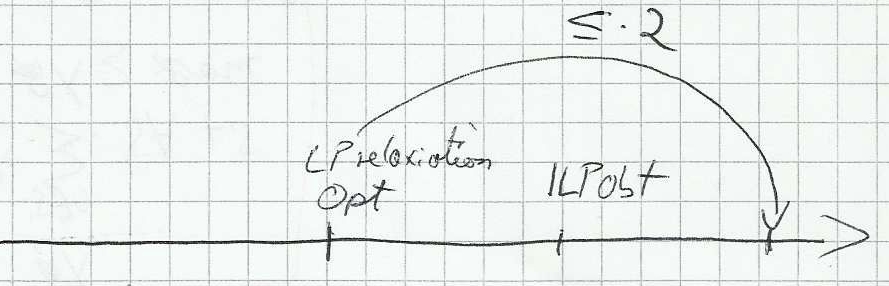 ≤ · 2
LP relaxiation
Opt
ILP obt